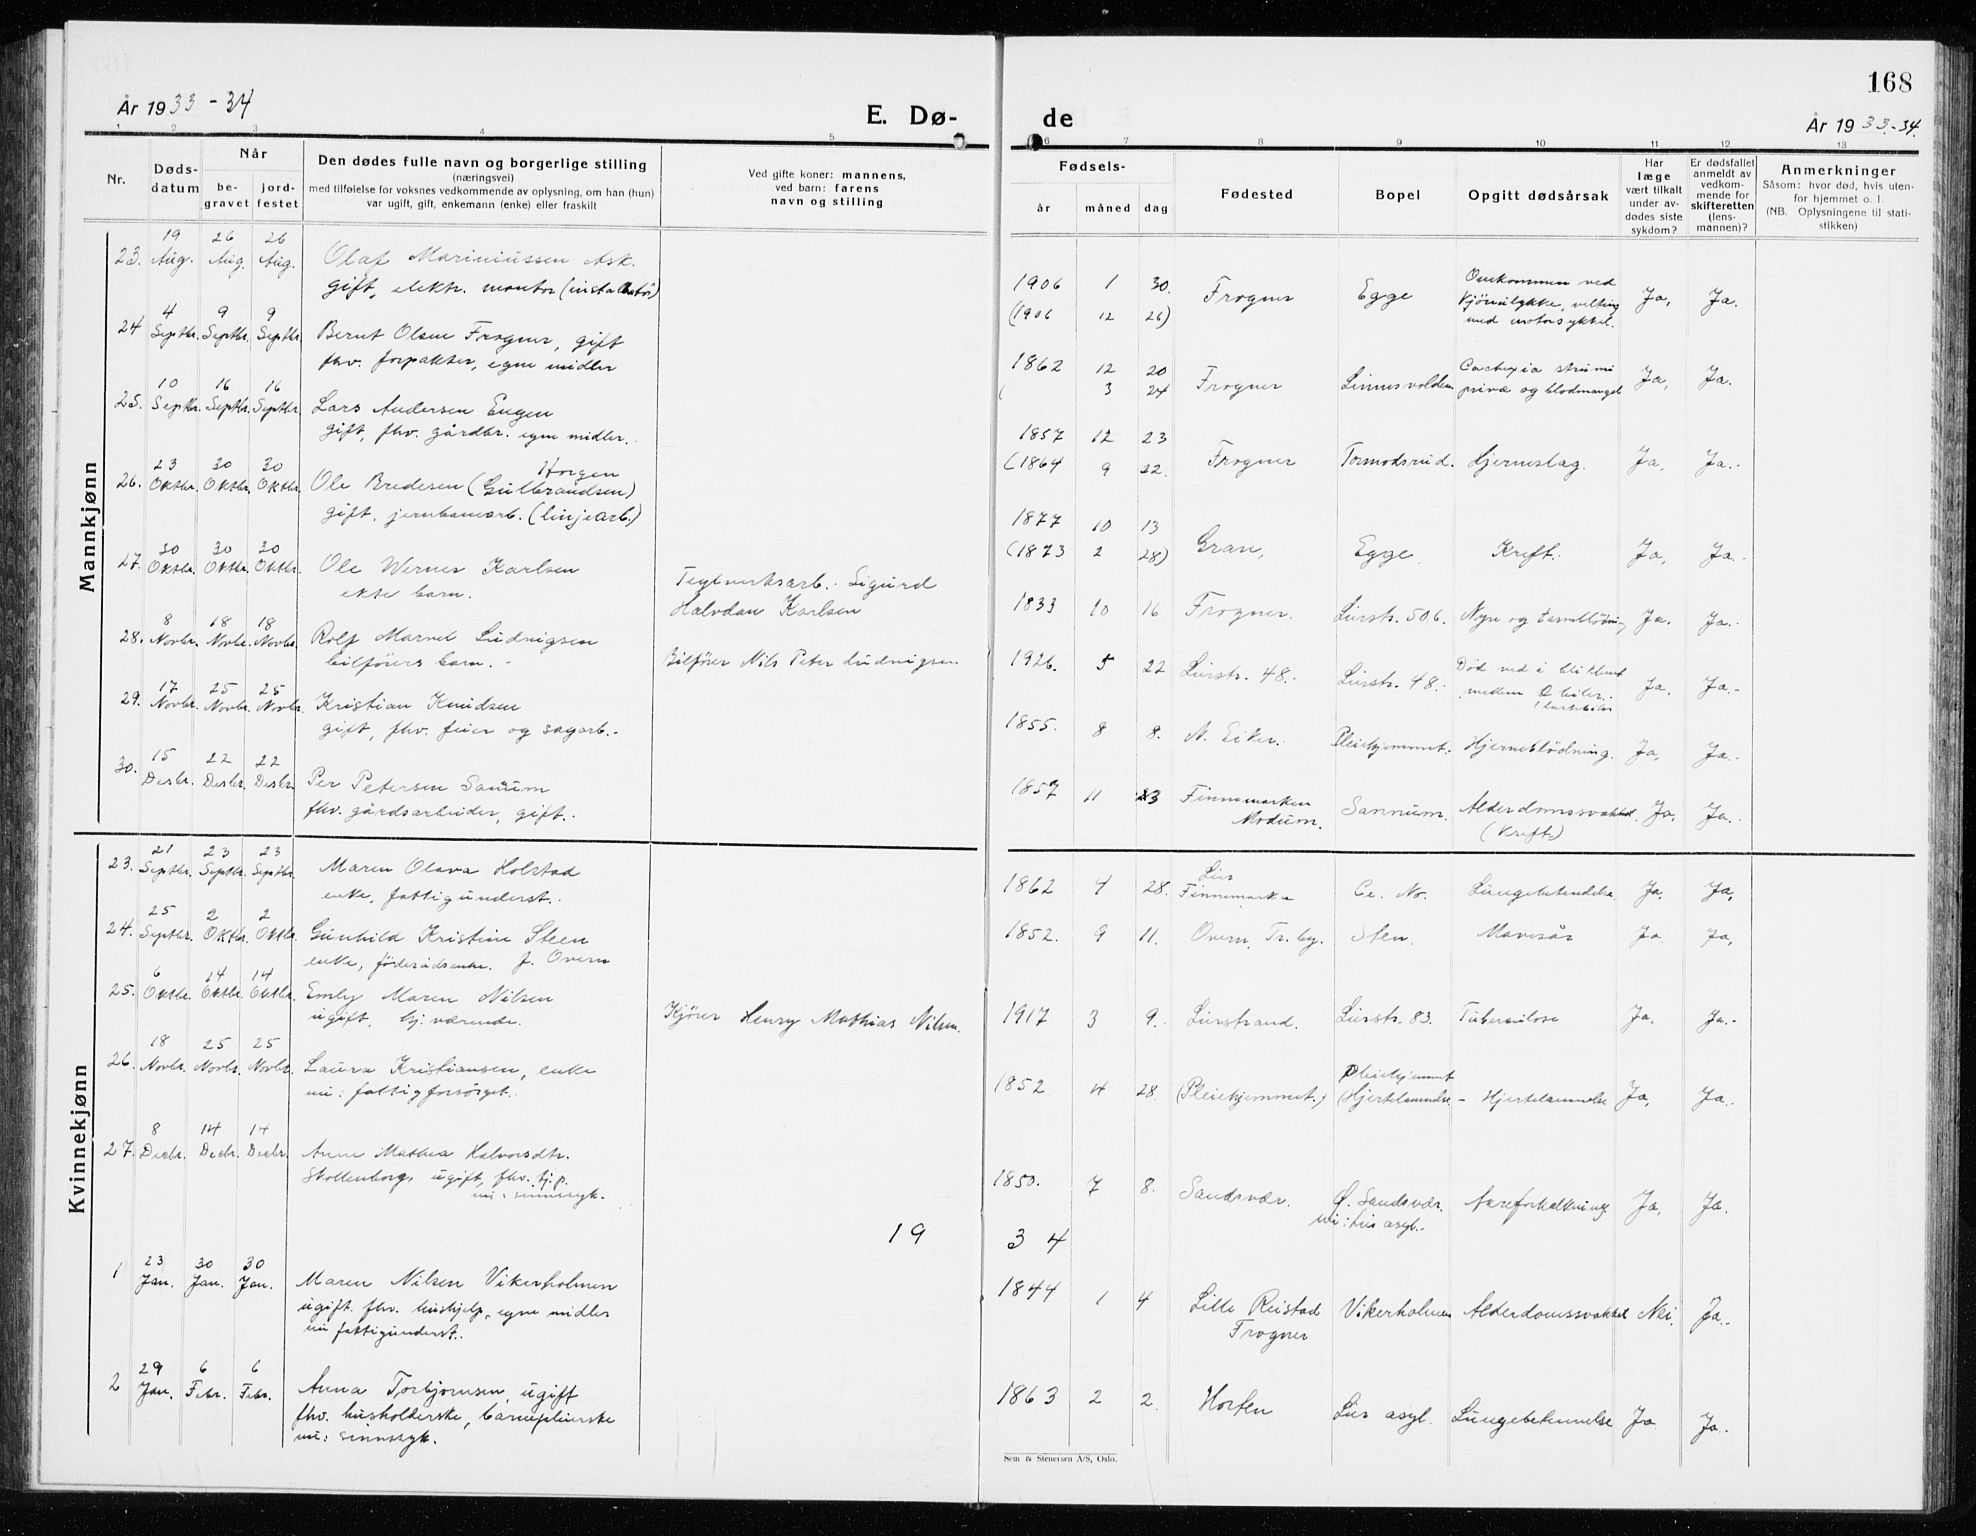 168
År 1933-34
E. Dø-
de
År 1933-34.
1 2 3 4 5 6 7 8 9 10 11 12 13
Nr.
Døds-
datum
Når
be-
gravet
jord-
festet
Den dødes fulle navn og borgerlige stilling
(næringsvei)
med tilføielse for voksnes vedkommende av oplysning, om han (hun)
var ugift, gift, enkemann (enke) eller fraskilt
Ved gifte koner: mannens,
ved barn: farens
navn og stilling
Fødsels-
år måned dag
Fødested
Bopel
Opgitt dødsårsak
Har
læge
vært tilkalt
under av-
dødes siste
sykdom?
Er dødsfallet
anmeldt av
vedkom-
mende for
skifteretten
(lens-
mannen)?
Anmerkninger
Såsom: hvor død, hvis uten-
for hjemmet o. l.
(NB. Oplysningene til stati-
stikken)
Mannkjønn
19 26 26
23. Aug. Aug. Aug. Olaf Mariniussen Ask.
gift, elektr. montør (installatør)
1906 1 30. Frogner Egge Omkommen ved
(1906 12 26) velting Ja, Ja.
med motorsykkel.
4 9 9
24 Septbr. Septbr. Septbr. Bernt Olsen Frogner, gift
fhv. forpakter, egne midler
1862 12 20 Frogner Cachexia strumi
3 24 privæ og blodmangel Ja, Ja.
10 16 16
25. Septbr. Septbr. Septbr. Lars Andersen Engen
gift, fhv. gårdbr. egne midler.
1857 12 23
(1864 9 22. Frogner Tormodsrud. Hjerneslag. Ja, Ja.
23 30 30
26. Oktbr. Oktbr. Oktbr. Ole Bredesen (Gulbrandsen)
Horgen
gift, jernbanearb. (linjearb.)
1877 10 13
(1873 2 28) Gran, Egge Kreft. Ja, Ja.
30 30 30
27. Oktbr. Oktbr. Oktbr. Ole Werner Karlsen
ekte barn.
Teglverksarb. Sigurd
Halvdan Karlsen
1933 10 16 Frogner. Lierstr. 506. Nyre og tarmblødning Ja. Ja.
8 18 18
28. Novbr. Novbr. Novbr. Rolf Marvel Ludvigsen
bilførers barn.
Bilfører Nils Peter Ludvigsen
1926. 5 22 Lierstr. 48. Lierstr. 48. Død ved å bli klemt
mellem 2 biler. Ja. Ja.
17 25 25
29. Novbr. Novbr. Novbr. Kristian Knudsen
gift, fhv. feier og sagarb.
1855. 8 8. N. Eiker. Pleiehjemmet. Hjerneblødning. Ja, Ja.
15 22 22
30. Desbr. Desbr. Desbr. Per Petersen Sannum
fhv. gårdsarbeider, gift.
1857 11 23 Finnemarken
Modum. Sannum. Alderdomssvakhet. Ja, Ja.
(Kreft)
Kvinnekjønn
21 23 23
23. Septbr. Septbr. Septbr. Maren Olava Holstad
enke, fattigunderst.
1862 4 28. Lier
Finnemarka Lungebetendelse Ja, Ja,
25 2 2
24. Septbr. Oktbr. Oktbr. Gunhild Kristine Steen
enke, føderådsenke. f. Overn
1852. 9 11. Overn. Tr.by. Sten. Mavesår Ja Ja,
6 14 14
25. Oktbr. Oktbr. Oktbr. Emly Maren Nilsen
ugift, hj. værende.
Kjører Henry Mathias Nilsen.
1917 3 9. Lierstrand. Lierstr. 83. Tuberculose Ja. Ja.
18 25 25
26. Novbr. Novbr. Novbr. Laura Kristiansen, enke
nu: fattigforsørget.
1852 4 28. (Pleiehjemmet.) Pleiehjemmet
(Hjertelammelse - Hjertelammelse Ja, Ja.
8 14 14
27. Decbr. Decbr. Decbr. Anne Mathea Halvorsdtr.
Stollenborg, ugift, fhv. tj.p.
nu: sinnssyk.
1850. 7 8. Sandsvær. Ø. Sandsvær. Aareforkalkning Ja, Ja.
nu: Lier asyl.
19 34
23 30 30
1 Jan. Jan. Jan. Maren Nilsen Vikerholmen
ugift. fhv. hushjelp, egne midler
nu fattigunderst.
1844 1 4 Lille Reistad
Frogner Vikerholmen Alderdomssvakhet Nei. Ja.
29 6 6
2 Jan. Febr. Febr. Anna Torbjørnsen, ugift
fhv. husholderske, barnepleierske
nu: sinnssyk.
1863 2 2. Horten Lier asyl. Lungebetennelse Ja Ja.
Sem & Stenersen A/S, Oslo.